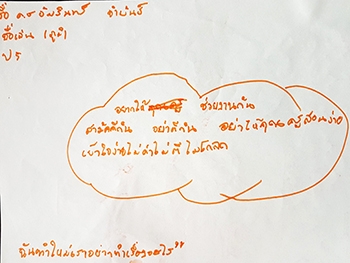 ชื่อ ดช อัมรินทร์
ชื่อเล่น (ภูมิ)
ป 5
อยากให้ ช่วยงานกัน
สามัคคีกัน อย่าตีกัน อย่าให้ ครูสอนง่าย
เข้าใจง่ายไม่ด่าไม่ตี ไม่โกรธ
ฉันทำใหม่เราอย่าทำเรื่องอะไร"